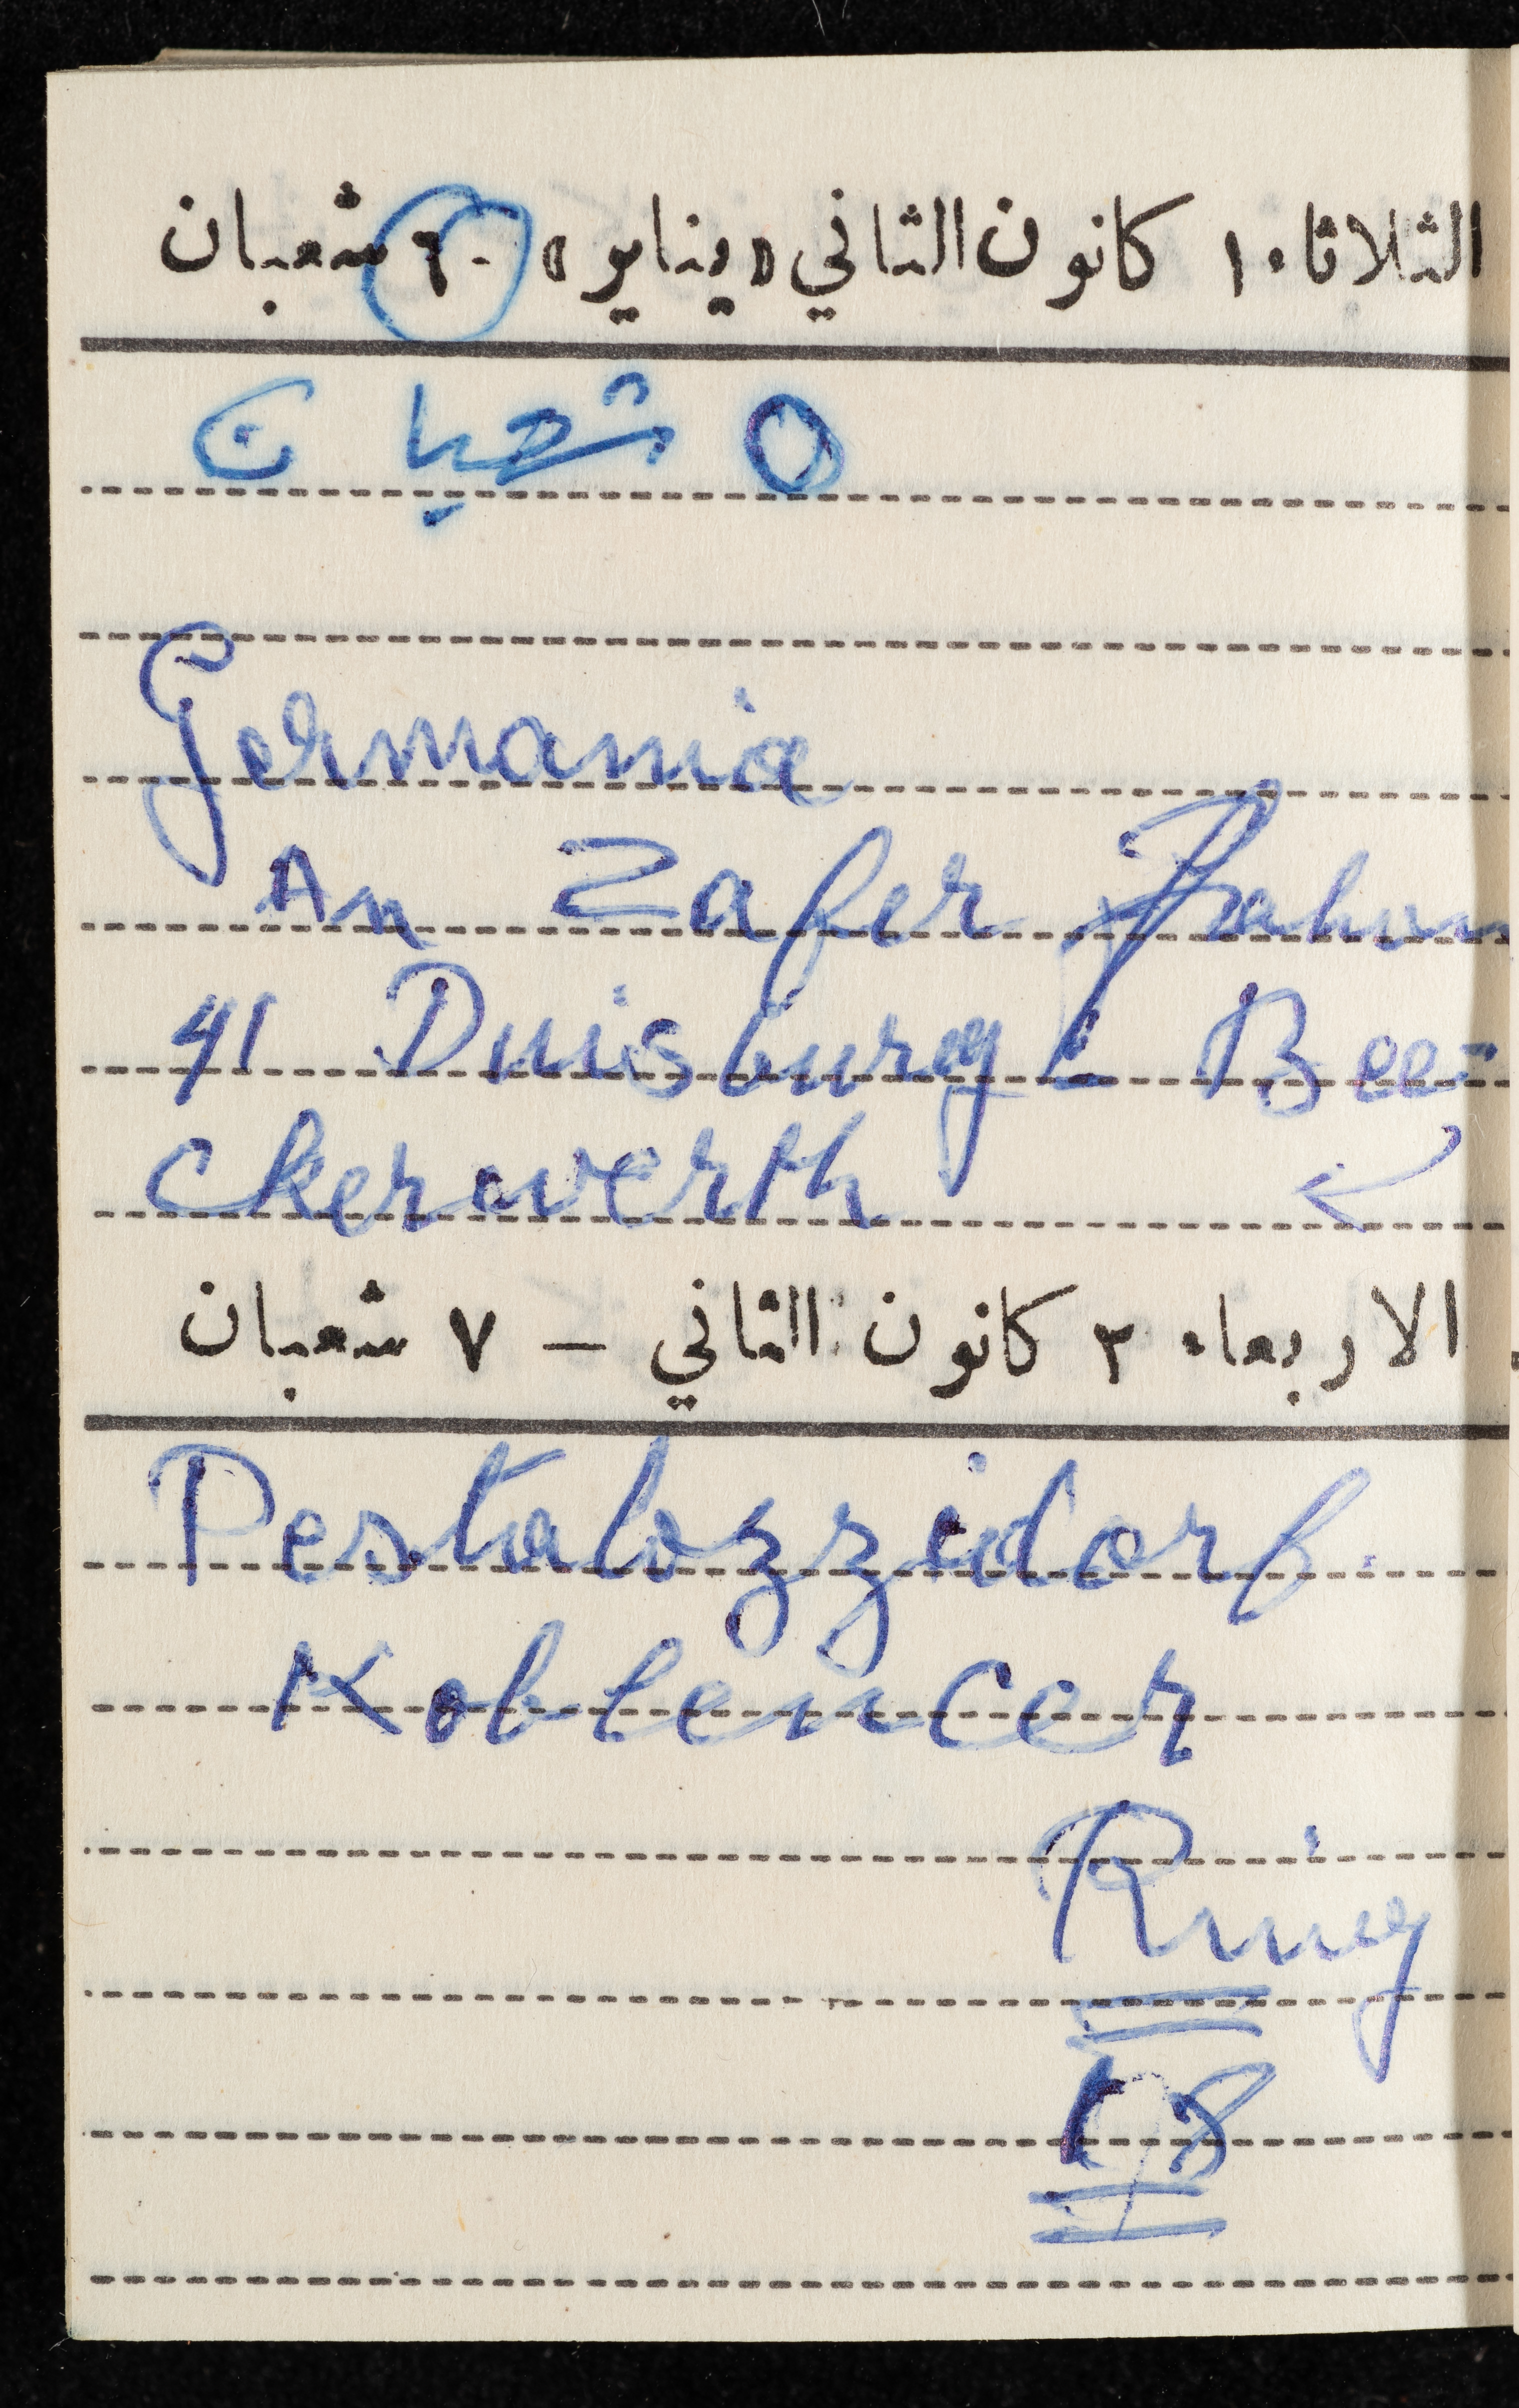 الثلاثاء ١ كانون الثاني «يناير» - ٦ شعبان
٥ شعبان
Germania
An Zafer
41 Duisburg - Bee-
ckerwerth
الاربعاء ٢ كانون الثاني – ٧ شعبان
Pestalozzidorf.
Koblencer
Ring